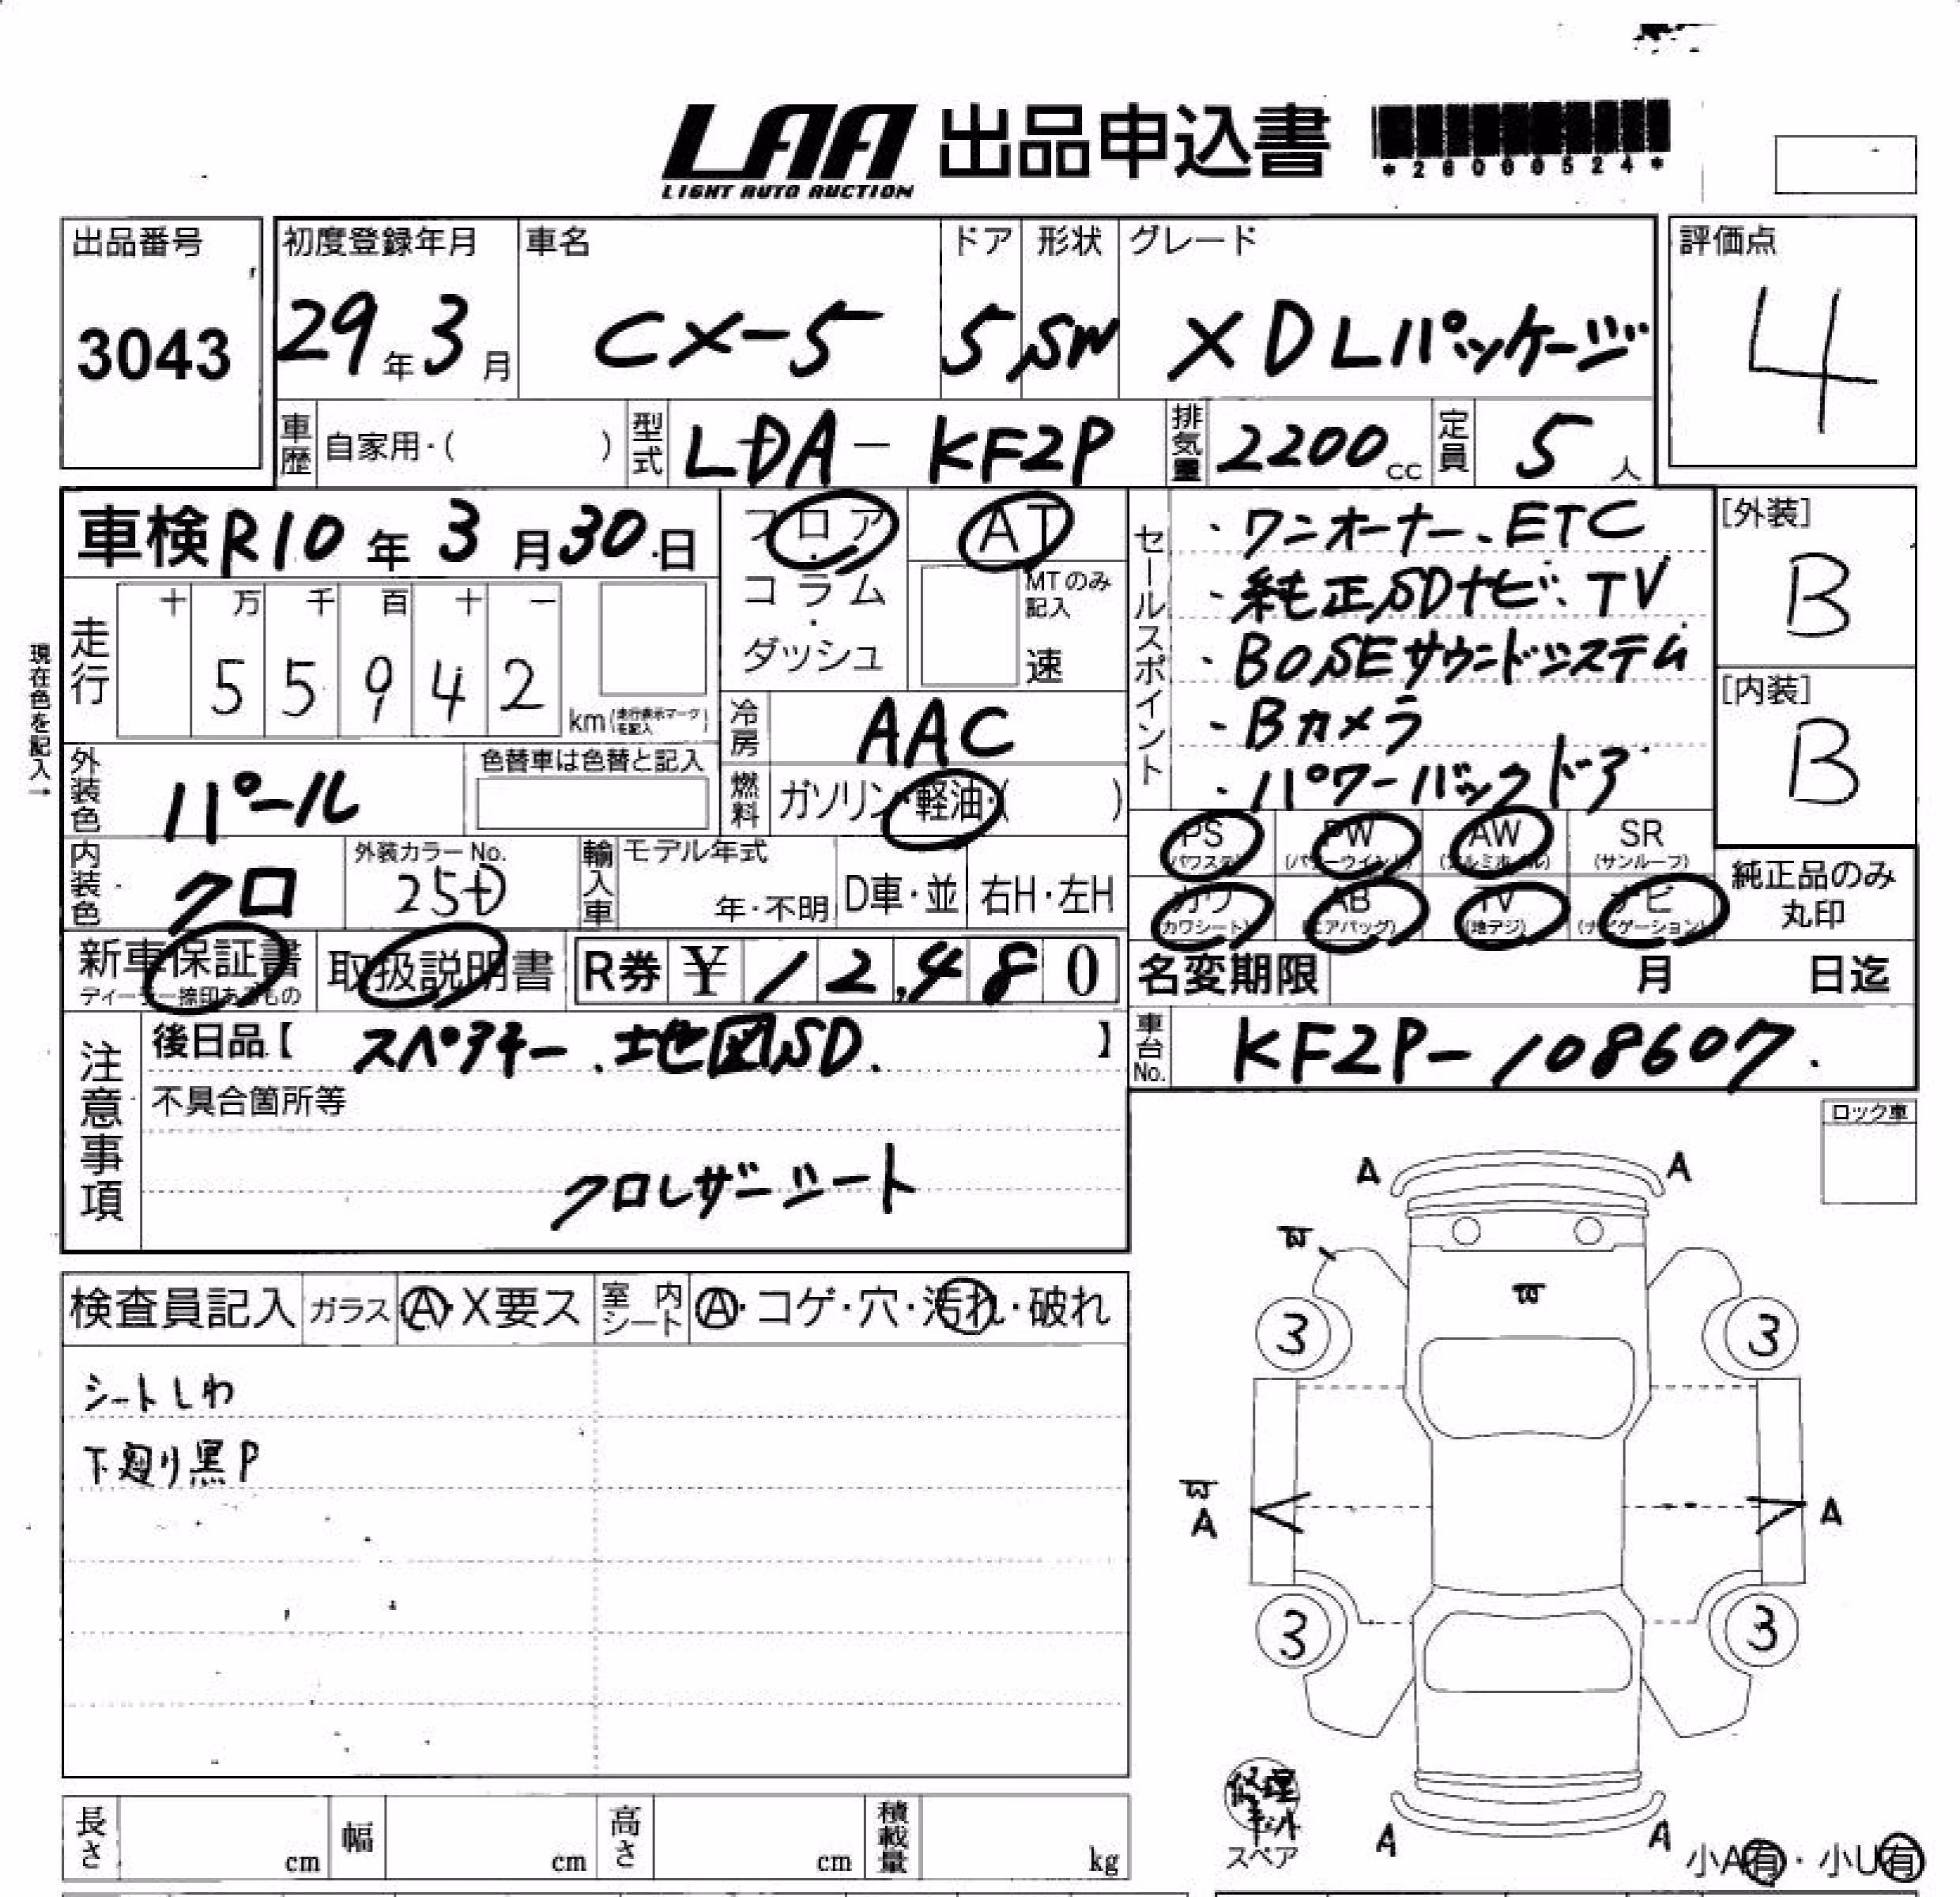 LAA 出品申込書
LIGHT AUTO AUCTION
*26000524*
出品番号
3043
初度登録年月
29年3月
車名
CX-5
ドア
5
形状
SW
グレード
XD Lパッケージ
評価点
4
車歴 自家用・( )
型式 LDA-KF2P
排気量 2200cc
定員 5人
車検 R10年3月30日
フロア・コラム・ダッシュ
AT
MTのみ記入
速
セールスポイント
・ワンオーナー、ETC
・純正SDナビ、TV
・BOSEサウンドシステム
・Bカメラ
・パワーバックドア
[外装]
B
[内装]
B
走行
十 万 千 百 十 一
5 5 9 4 2
km(走行表示マークを記入)
冷房 AAC
現在色を記入→
外装色 パール
色替車は色替と記入
燃料 ガソリン・軽油・( )
PS (パワステ)
PW (パワーウインド)
AW (アルミホイル)
SR (サンルーフ)
カワ (カワシート)
AB (エアバッグ)
TV (地デジ)
ナビ (ナビゲーション)
純正品のみ丸印
内装色 クロ
外装カラーNo. 25D
輸入車 モデル年式 年・不明
D車・並
右H・左H
新車保証書
ディーラー捺印あるもの
取扱説明書
R券 ¥12,480
名変期限 月 日迄
注意事項
後日品【 スペアキー、地図SD. 】
車台No. KF2P-108607.
不具合箇所等
クロレザーシート
ロック車
検査員記入 ガラス A・X要ス 室内シート A・コゲ・穴・汚れ・破れ
シートしわ
下廻り黒P
A A
3 3
A A
3 3
修理キット
スペア
A A
小A有・小U有
長さ cm 幅 cm 高さ cm 積載量 kg